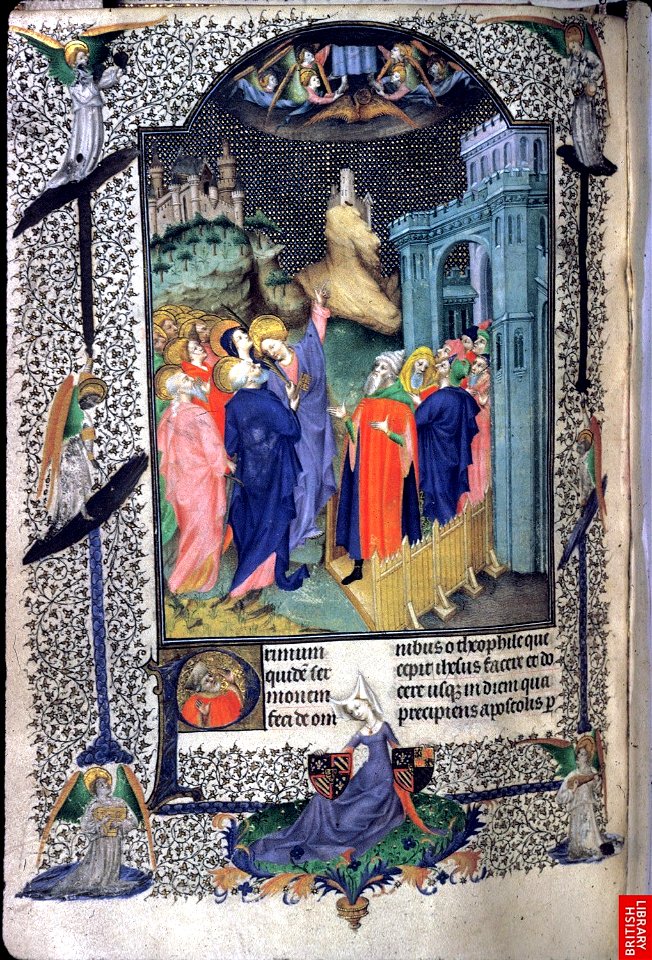 Primum
quidē ser
monem
feci de om
nibus o theophile que
cepit ihesus facere et do
cere usq; in diem qua
precipiens apostolis p
BRITISH
LIBRARY